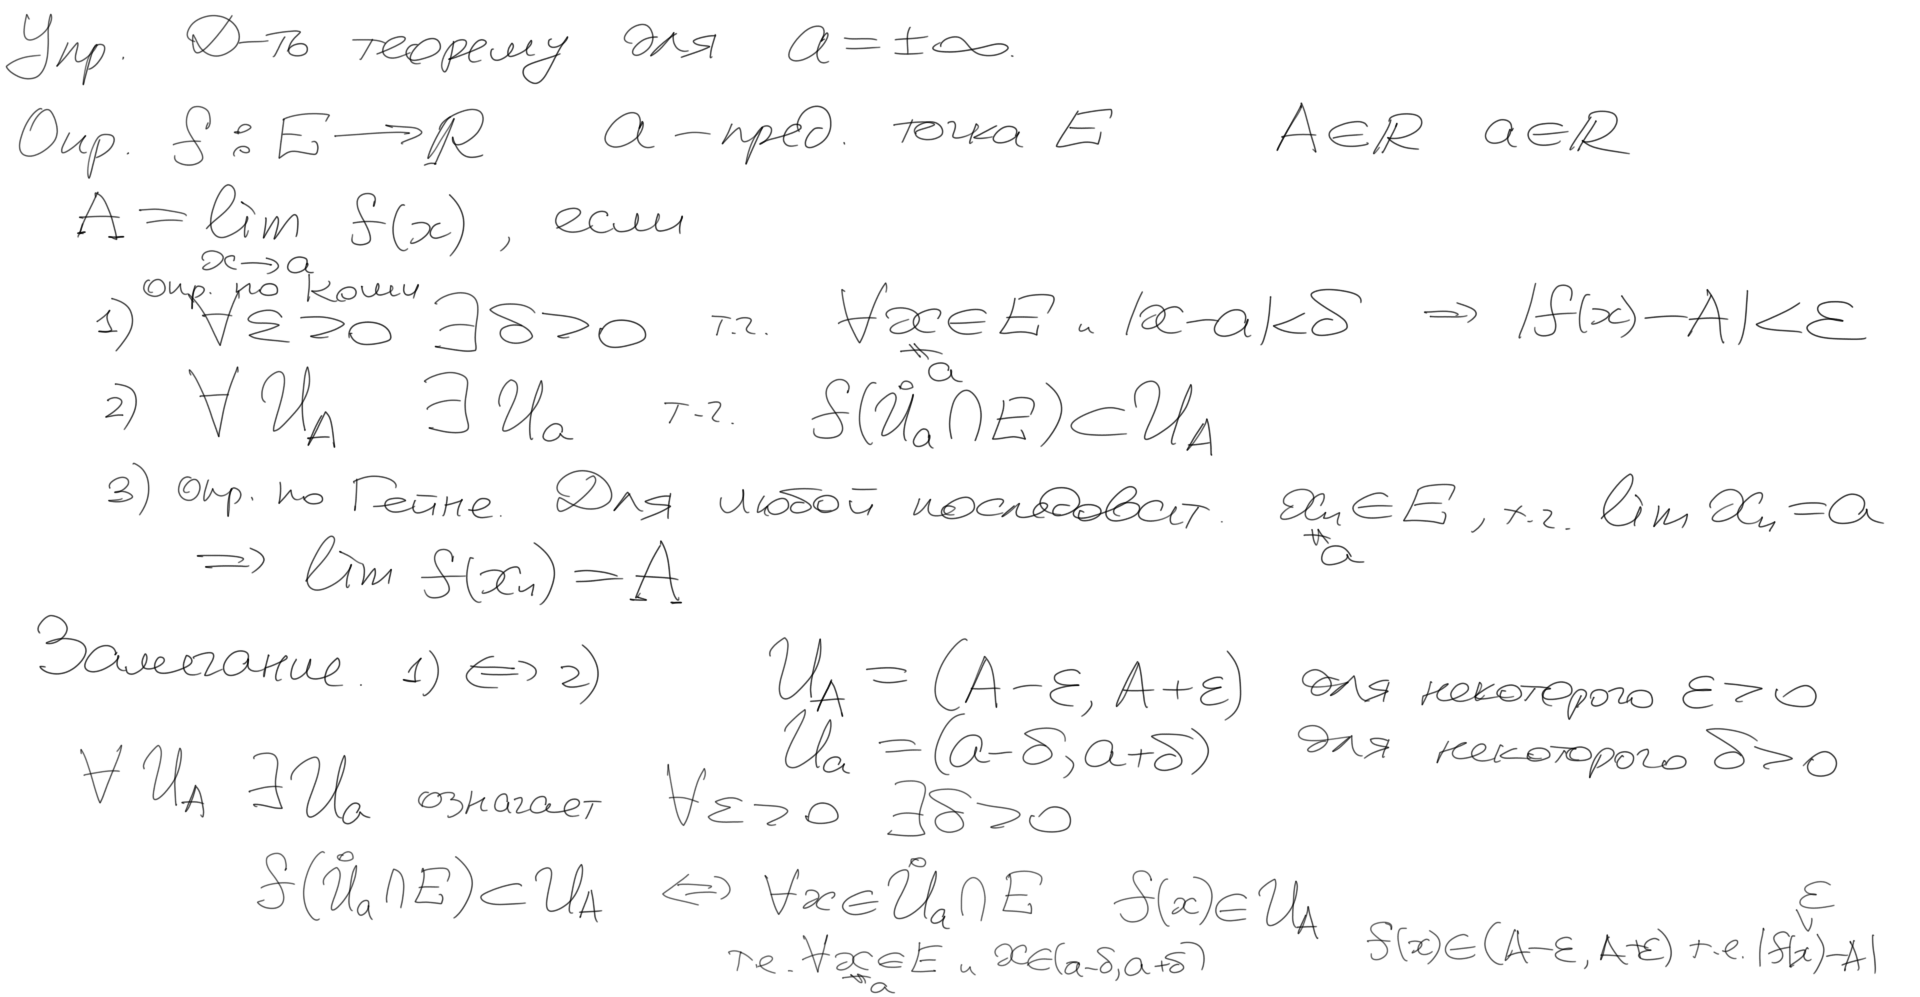 Упр. Д-ть теорему для a = ±∞.
Опр. f : E → ℝ a – пред. точка E A ∈ ℝ a ∈ ℝ
A = lim f(x), если
x→a
опр. по Коши
1) ∀ε>0 ∃δ>0 т.ч. ∀x∈E и |x−a|<δ ⇒ |f(x)−A|<ε
≠a
2) ∀ U_A ∃ U_a т.ч. f(Ů_a ∩ E) ⊂ U_A
3) Опр. по Гейне. Для любой последоват. x_n ∈ E, т.ч. lim x_n = a
≠a
⇒ lim f(x_n) = A
Замечание. 1) ⇔ 2) U_A = (A−ε, A+ε) для некоторого ε>0
U_a = (a−δ, a+δ) для некоторого δ>0
∀ U_A ∃ U_a означает ∀ε>0 ∃δ>0
f(Ů_a ∩ E) ⊂ U_A ⇔ ∀x ∈ Ů_a ∩ E f(x) ∈ U_A
т.е. ∀x∈E и x∈(a−δ, a+δ) f(x)∈(A−ε, A+ε) т.е. |f(x)−A| < ε
≠a